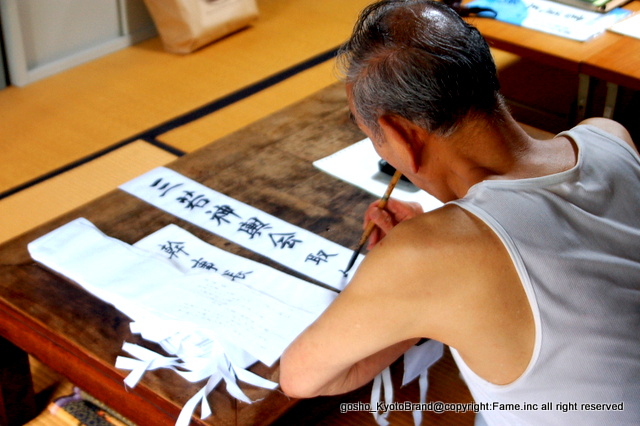 三若神輿会 取
幹事長
gosho_KyotoBrand@copyright:Fame.inc all right reserved